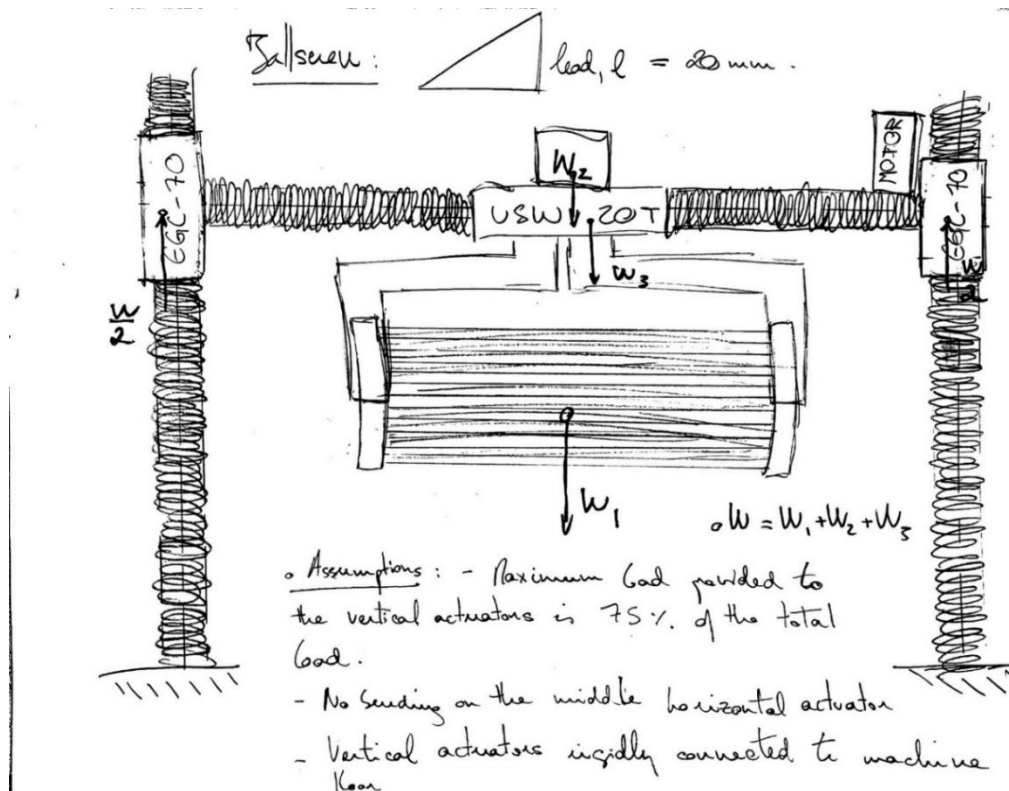 Ballscrew :
lead, l = 20 mm.
MOTOR
EGC-70
W2
VSW 20T
EGC-70
W3
W/2
W/2
W1
∘ W = W1 + W2 + W3
∘ Assumptions : - Maximum load provided to
the vertical actuators is 75 %. of the total
load.
- No bending on the middle horizontal actuator
- Vertical actuators rigidly connected to machine